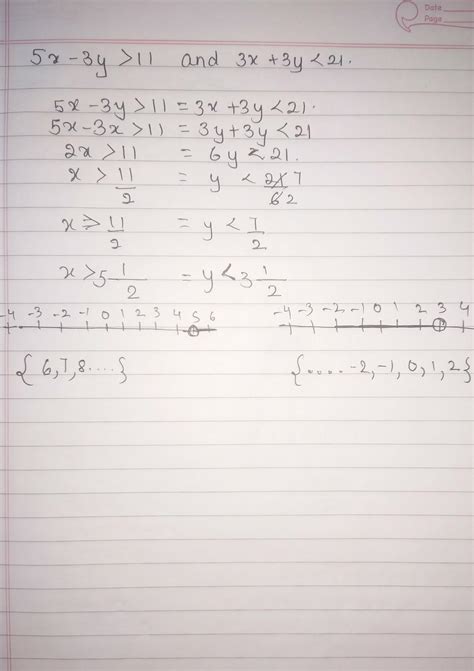 Date
Page
5x - 3y > 11 and 3x + 3y < 21.
5x - 3y > 11 = 3x + 3y < 21.
5x - 3x > 11 = 3y + 3y < 21
2x > 11 = 6y < 21.
x > 11/2 = y < 21/6 7/2
x ≥ 11/2 = y < 7/2
x > 5 1/2 = y < 3 1/2
-4 -3 -2 -1 0 1 2 3 4 5 6 -4 -3 -2 -1 0 1 2 3 4
{6,7,8....} {.... -2, -1, 0, 1, 2}